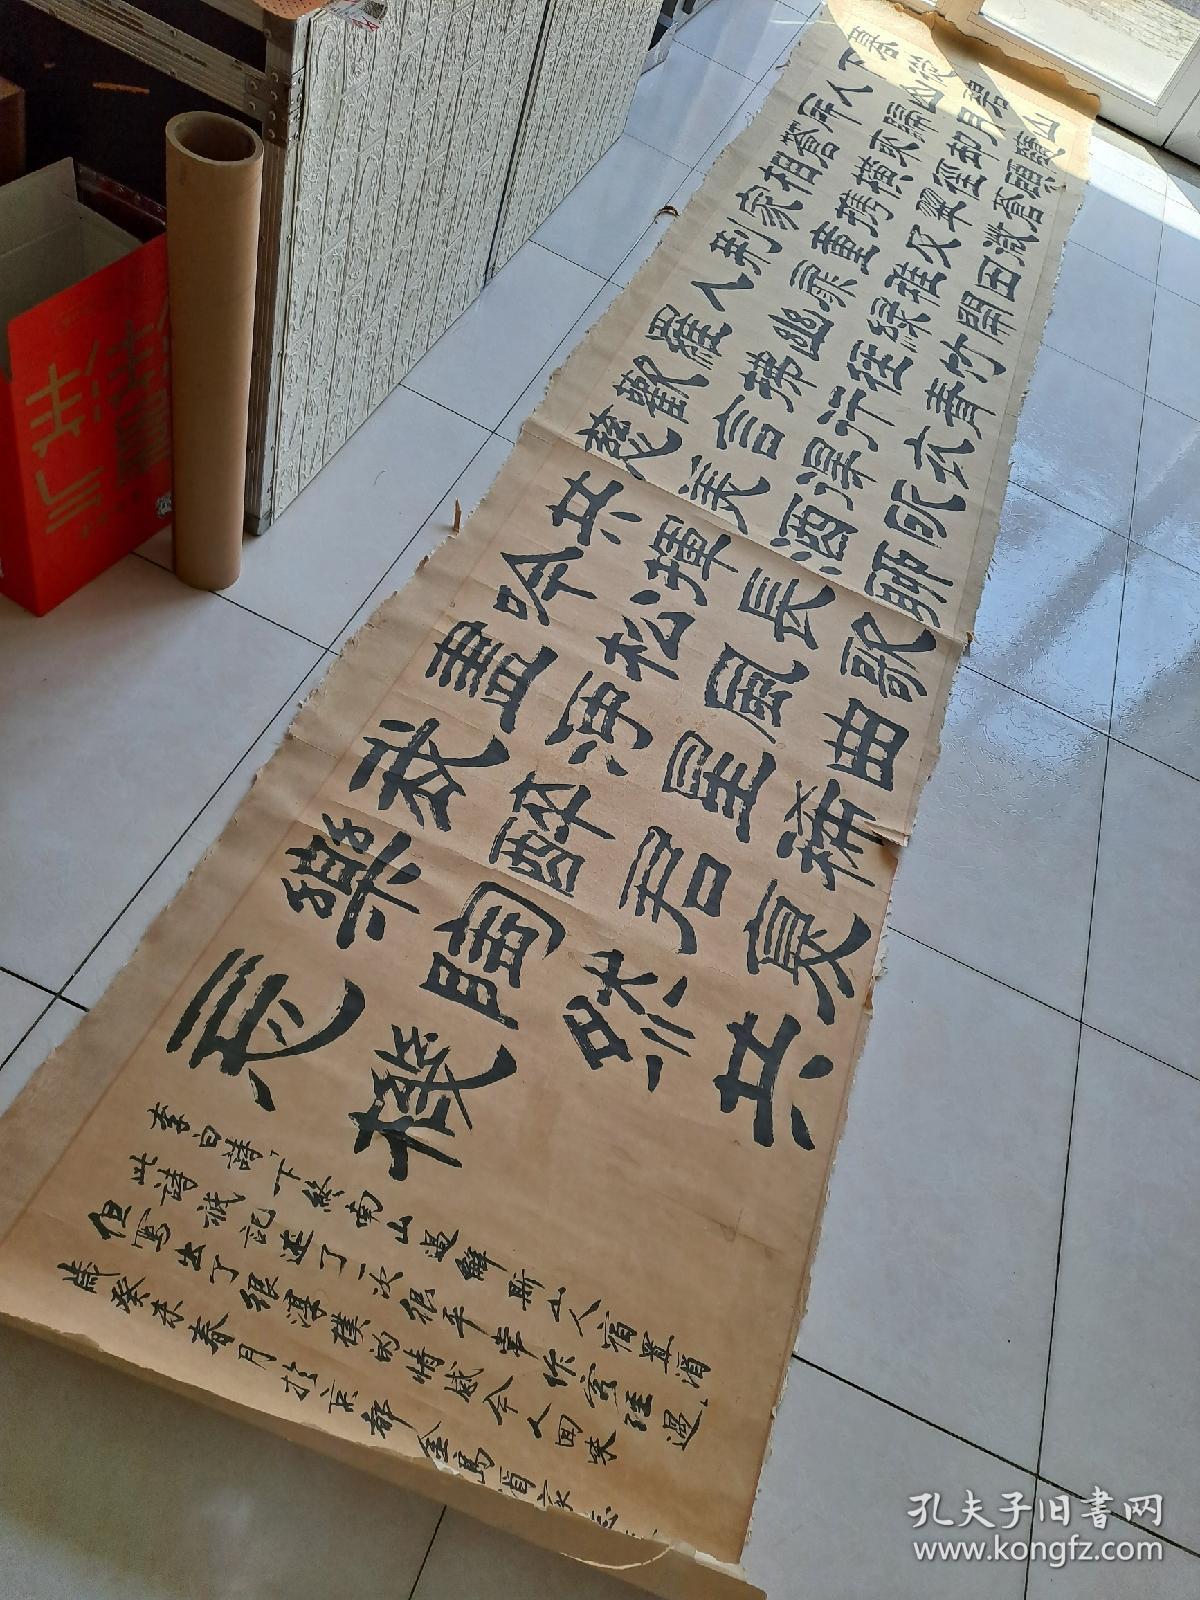 暮從碧山
下山月隨
人歸却顧
所來徑蒼
蒼橫翠微
相攜及田
家童稚開
荊扉綠竹
入幽徑青
蘿拂行衣
歡言得所
憩美酒聊
共揮長歌
吟松風曲
盡河星稀
我醉君復
樂陶然共
忘機
李白詩下終南山過斛斯山人宿置酒
此詩祇記述了一次很平常作客經過,
但寫出了很淳樸的情感令人回味
歲癸未春月於京都金馬酒家
孔夫子旧书网
www.kongfz.com